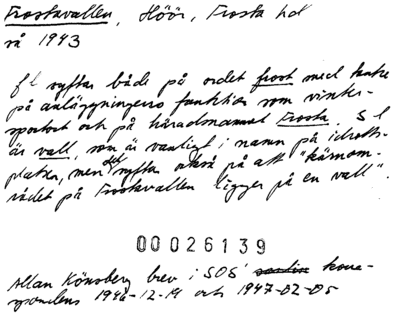 Frostavallen, Höör, Frosta hd
så 1943
f l syftar både på ordet frost med tanke
på anläggningens funktion som vinter-
sportort och på häradsnamnet Frosta. S l
är vall, som är vanligt i namn på idrotts-
platser, men det syftar också på att "kärnom-
rådet på Frostavallen ligger på en vall".
00026139
Allan Könsberg brev i SOS' samlin korre-
spondens 1946-12-19 och 1947-02-05